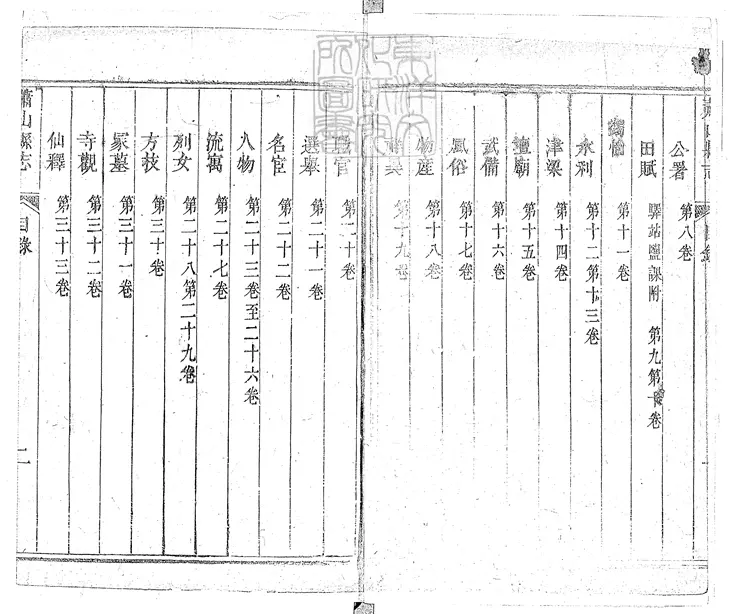 公署 第八卷
田賦 驛站鹽課附 第九第十卷
蠲恤 第十一卷
水利 第十二第十三卷
津梁 第十四卷
壇廟 第十五卷
武備 第十六卷
風俗 第十七卷
物産 第十八卷
第十九卷
職官 第二十卷
選舉 第二十一卷
名宦 第二十二卷
人物 第二十三卷至二十六卷
流寓 第二十七卷
列女 第二十八第二十九卷
方技 第三十卷
冢墓 第三十一卷
寺觀 第三十二卷
仙釋 第三十三卷
蕭山縣志 目錄 二